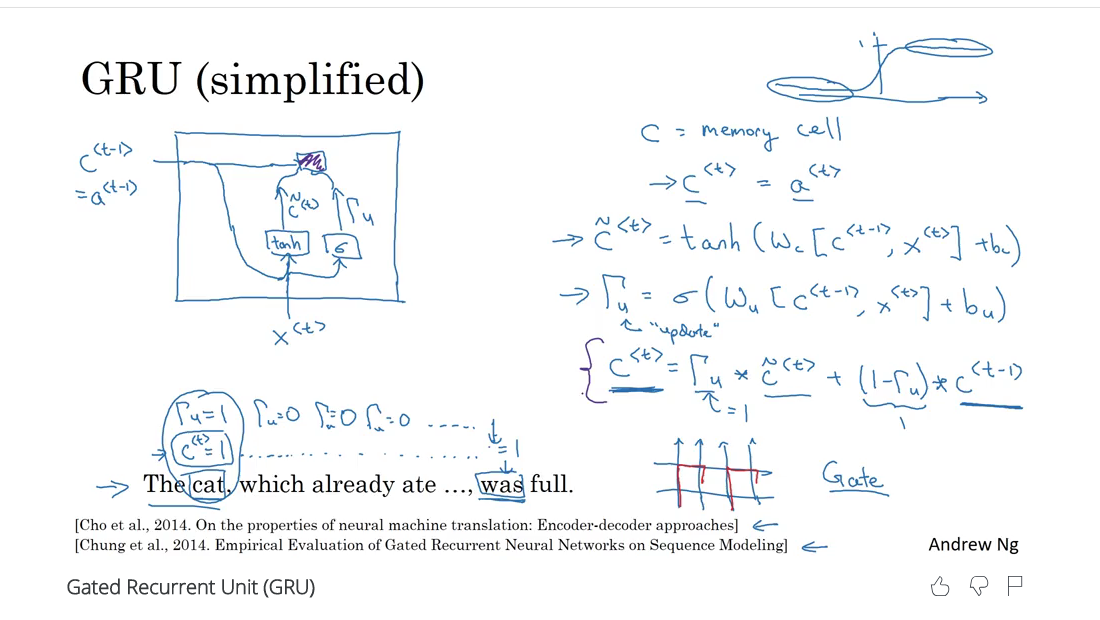 GRU (simplified)
c = memory cell
c<t-1>
= a<t-1>
→ c<t> = a<t>
c̃<t> Γu
tanh σ
→ c̃<t> = tanh (Wc [c<t-1>, x<t>] + bc)
→ Γu = σ(Wu [c<t-1>, x<t>] + bu)
x<t>
"update"
c<t> = Γu * c̃<t> + (1-Γu) * c<t-1>
= 1
Γu=1 Γu=0 Γu=0 Γu=0 .....
c<t>=1 = 1
→ The cat, which already ate ..., was full.
Gate
[Cho et al., 2014. On the properties of neural machine translation: Encoder-decoder approaches] ←
[Chung et al., 2014. Empirical Evaluation of Gated Recurrent Neural Networks on Sequence Modeling] ←
Andrew Ng
Gated Recurrent Unit (GRU)